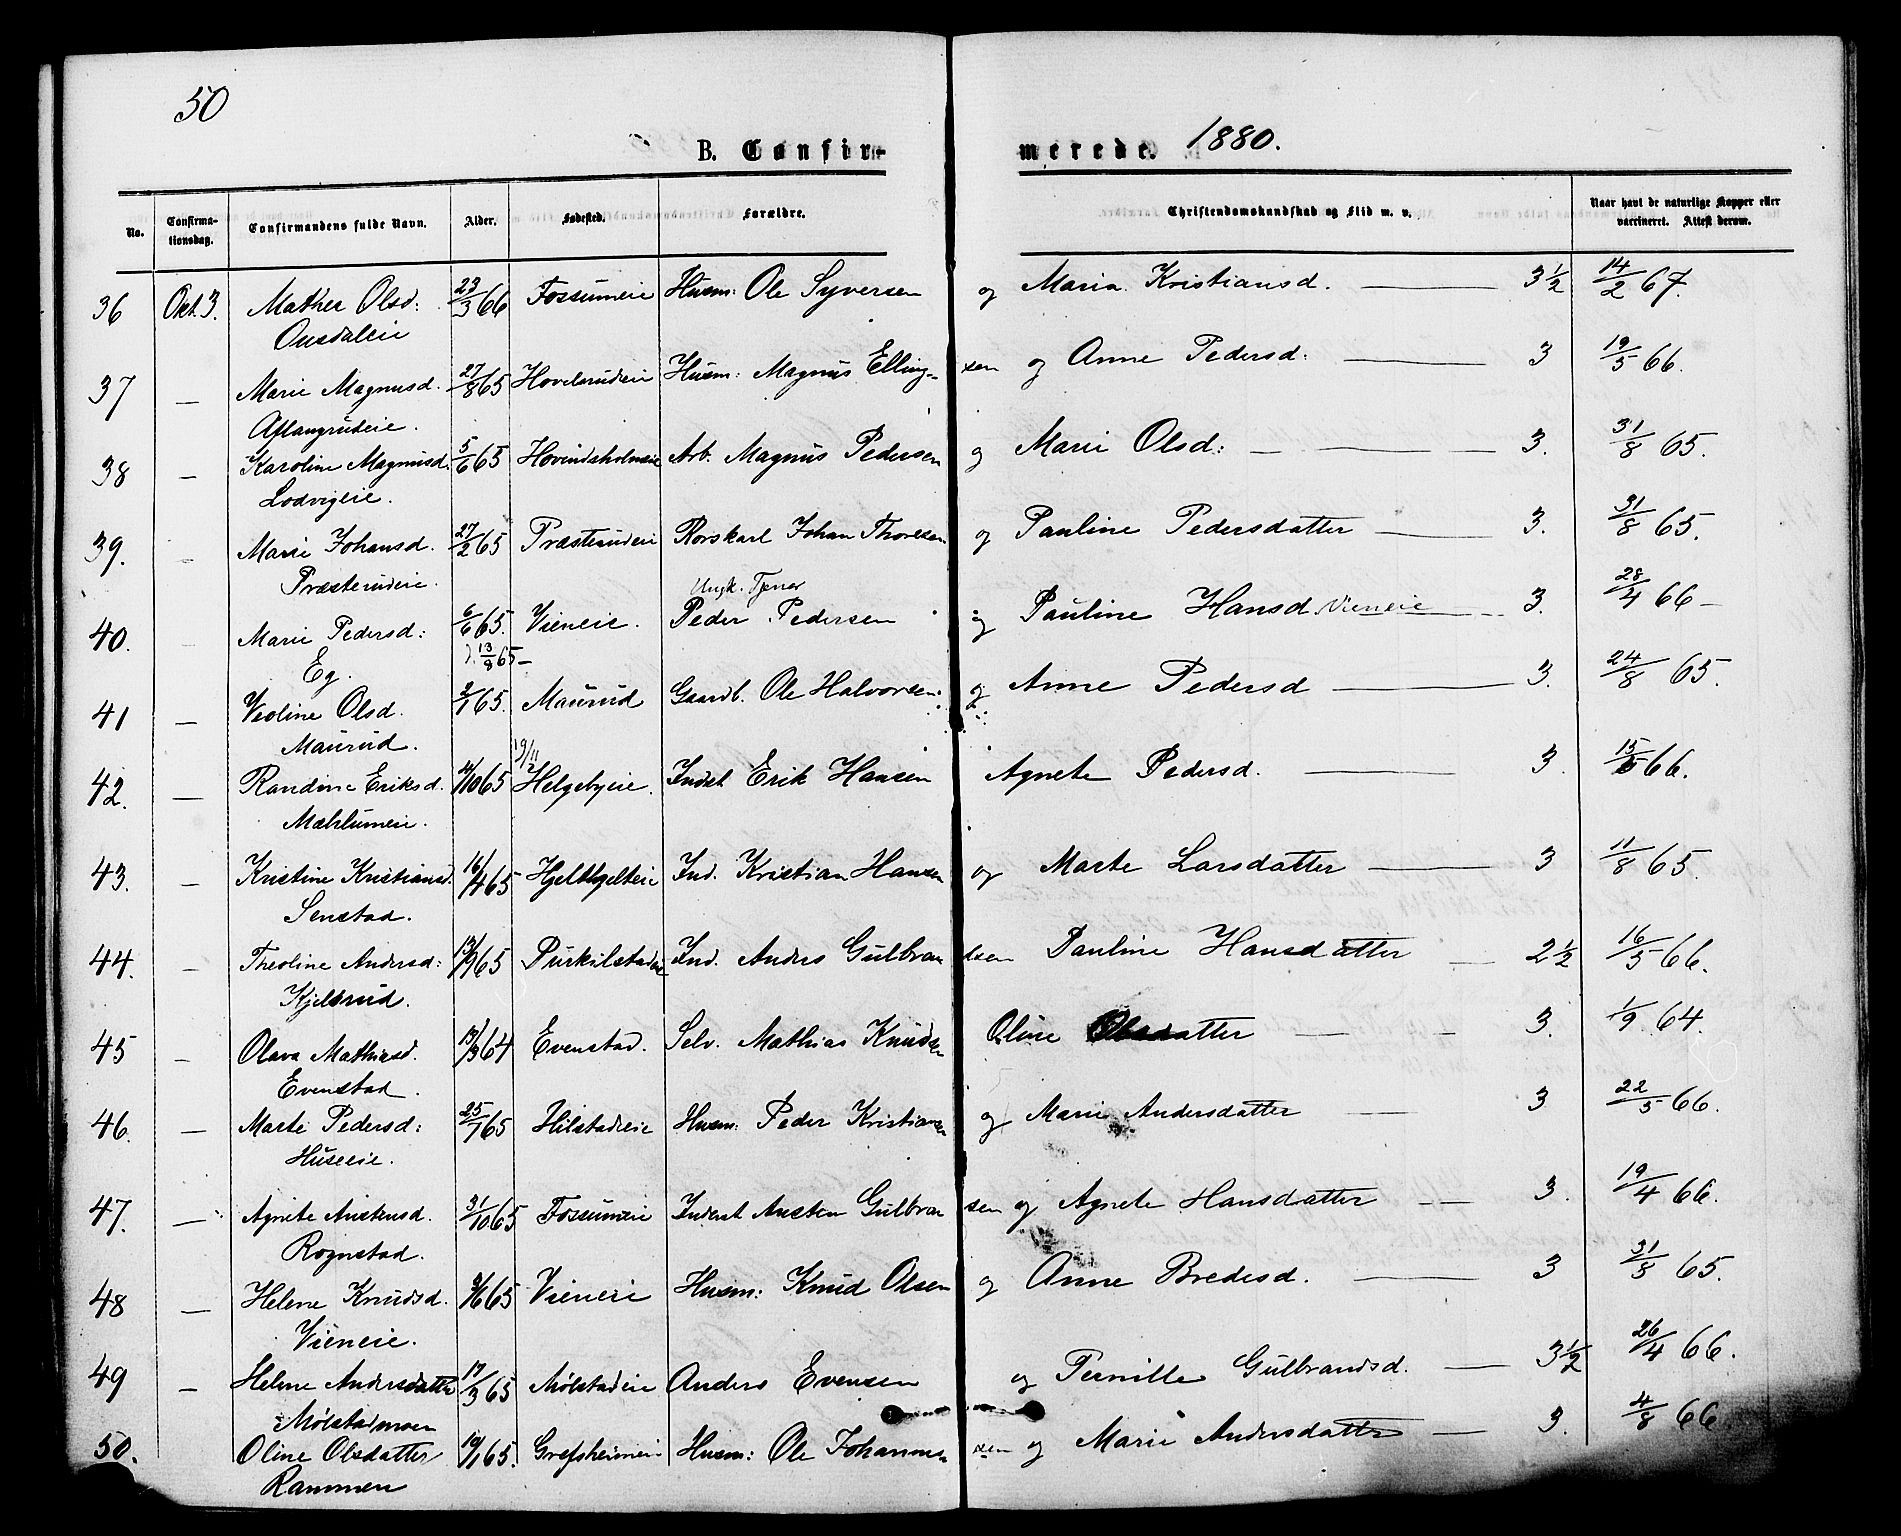 50
B. Confir- merede. 1880.
No. Confirma-tionsdag. Confirmandens fulde Navn. Alder. Fødested. Forældre. Christendomskundskab og Flid m. v. Naar havt de naturlige Kopper eller vaccineret. Attest derom.
36 Okt. 3. Mathea Olsd: 23/3 66 Fossumeie Husm: Ole Syversen og Maria Kristiansd. — 3½ 14/2 67.
37 — Marie Magnusd. 27/8 65 Hovelsrudeie Husm: Magnus Elling- sen og Anne Pedersd: — 3 19/5 66.
Aflangrudeie.
38 — Karoline Magnusd. 5/6 65 Hovindsholmeie Arb. Magnus Pedersen og Marie Olsd: — 3. 31/8 65.
Lodvigeie.
39. — Marie Johansd. 27/2 65 Præsterudeie Rorskarl Johan Thoresen og Pauline Pedersdatter — 3. 31/8 65.
Præsterudeie.
Ungk. Tjener
40. — Marie Pedersd: 6/6 65. Vieneie. Peder Pedersen og Pauline Hansd Vieneie — 3. 28/4 66 —
Eg. 13/8 65 —
41 — Veoline Olsd. 2/7 65. Maurud Gaardb. Ole Halvorsen: og Anne Pedersd — 3. 24/8 65.
Maurud.
19/11
42. — Randine Eriksd. 4/10 65 Helgebyeie. Inderst Erik Hansen Agnete Pedersd. — 3. 15/5 66.
Mæhlumeie.
43. — Kristine Kristiansd. 16/4 65 Hjelthjelteie Ind. Kristian Hansen og Marte Larsdatter — 3 11/8 65.
Senstad.
44. — Theoline Andersd: 13/9 65 Purkilstadeie Ind. Anders Gulbran dsen Pauline Hansdatter — 2½ 16/5 66.
Kjelsrud.
45 — Olava Mathiasd. 13/3 64 Evenstad. Selv. Mathias Knudsen Oline Olsdatter — 3. 1/9 64.
Evenstad.
46. — Marte Pedersd: 25/7 65 Hilstadeie Husm: Peder Kristiansen og Marie Andersdatter — 3 22/5 66.
Huseeie.
47. — Agnete Austensd. 31/10 65 Fossumeie Inderst Austen Gulbran sen og Agnete Hansdatter — 3. 19/4 66.
Rognstad.
48 — Helene Knudsd. 3/6 65 Vieneie Husm: Knud Olsen og Anne Bredesd. — 3 31/8 65.
Vieneie.
49 — Helene Andersdatter 17/3 65 Mølstadeie Anders Evensen og Pernille Gulbrandsd. — 3½ 26/4 66.
Mølstadmoen
50. Oline Olsdatter 10/1 65. Grefsheimeie Husm: Ole Johannes- sen og Marie Andersdatter — 3. 4/8 66
Rammen